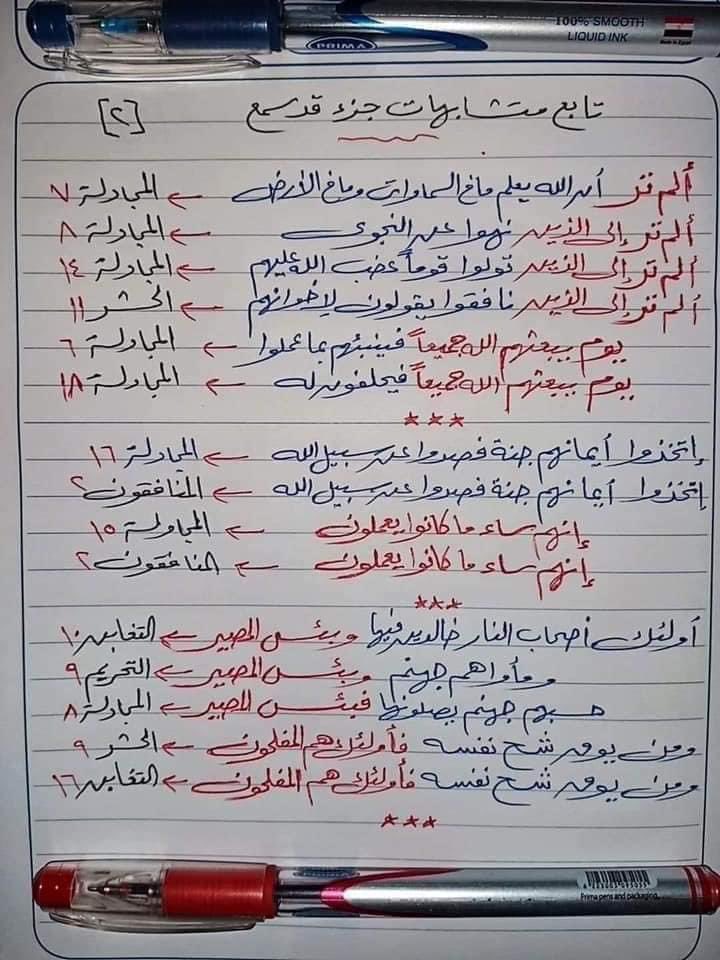 100% SMOOTH
LIQUID INK
PRIMA
Made in Egypt
تابع متشابهات جزء قد سمع [٢]
ألم تر أن الله يعلم ما في السماوات وما في الأرض ← المجادلة ٧
ألم تر إلى الذين نهوا عن النجوى ← المجادلة ٨
ألم تر إلى الذين تولوا قوماً غضب الله عليهم ← المجادلة ١٤
ألم تر إلى الذين نافقوا يقولون لإخوانهم ← الحشر ١١
يوم يبعثهم الله جميعاً فينبئهم بما عملوا ← المجادلة ٦
يوم يبعثهم الله جميعاً فيحلفون له ← المجادلة ١٨
***
إتخذوا أيمانهم جنة فصدوا عن سبيل الله ← المجادلة ١٦
إتخذوا أيمانهم جنة فصدوا عن سبيل الله ← المنافقون ٢
إنهم ساء ما كانوا يعملون ← المجادلة ١٥
إنهم ساء ما كانوا يعملون ← المنافقون ٢
***
أولئك أصحاب النار خالدين فيها وبئس المصير ← التغابن ١٠
ومأواهم جهنم وبئس المصير ← التحريم ٩
حسبهم جهنم يصلونها فبئس المصير ← المجادلة ٨
ومن يوق شح نفسه فأولئك هم المفلحون ← الحشر ٩
ومن يوق شح نفسه فأولئك هم المفلحون ← التغابن ١٦
***
Prima pens and packaging